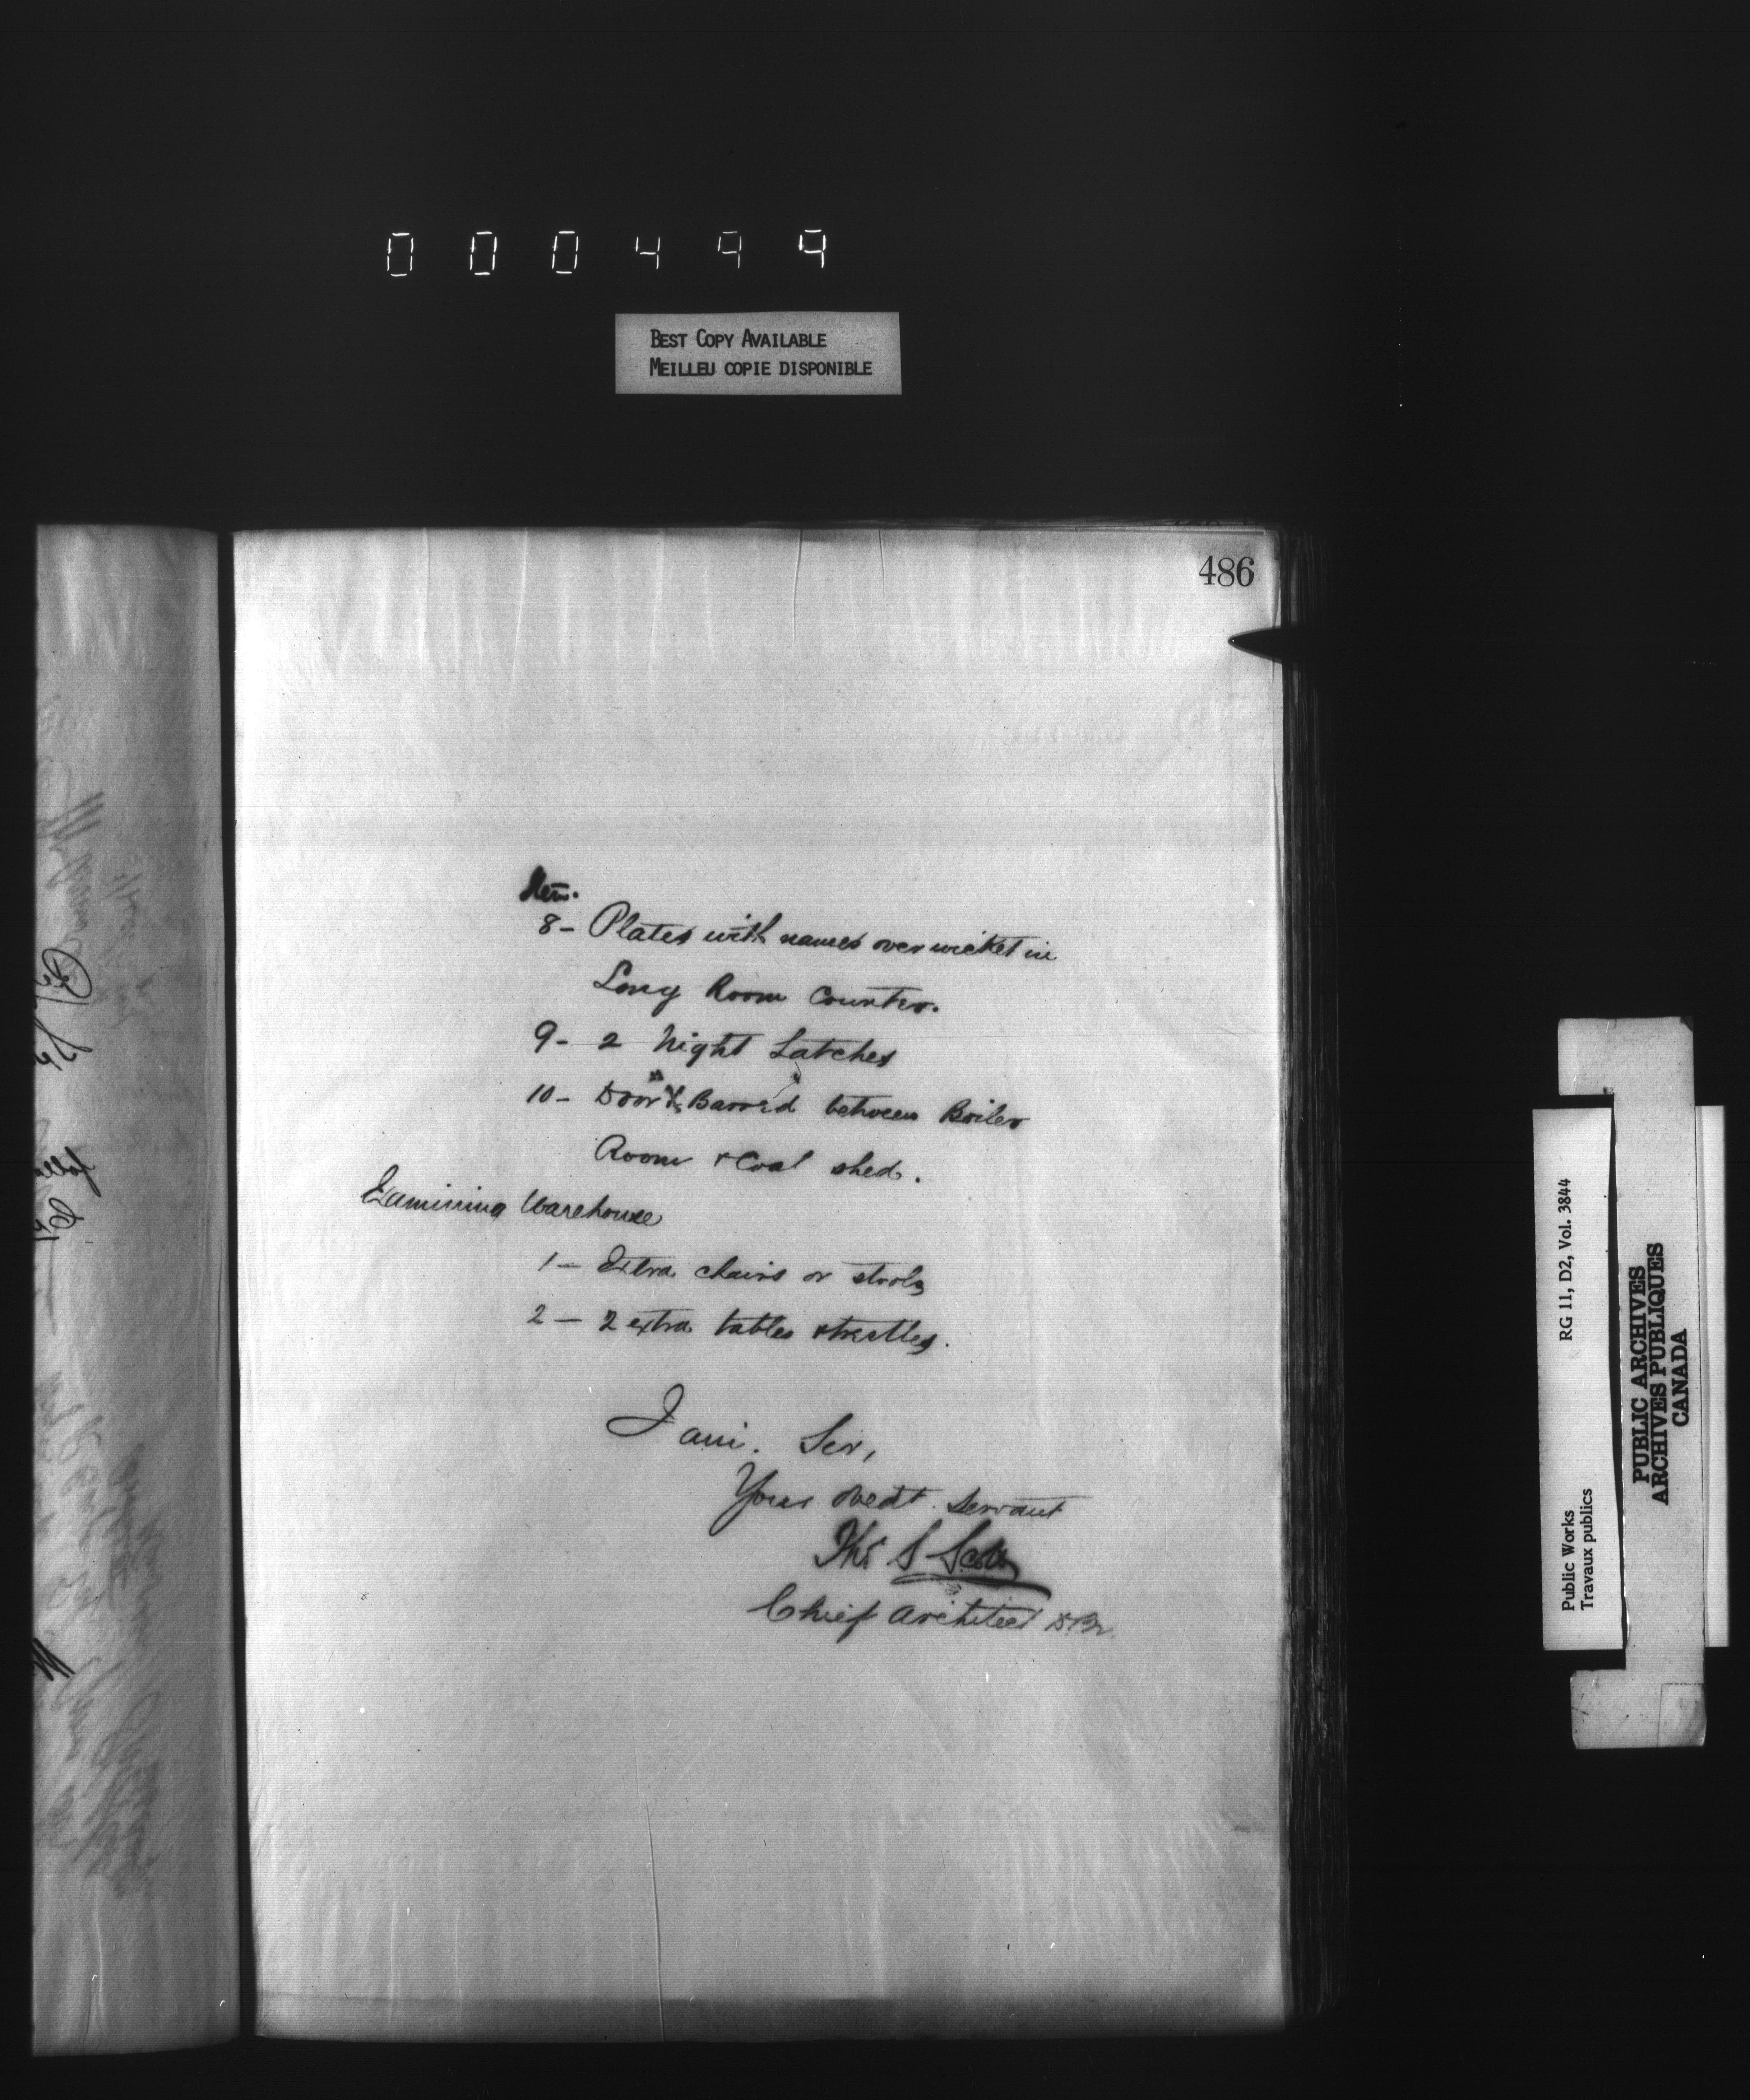 000499
BEST COPY AVAILABLE
MEILLEU COPIE DISPONIBLE
486
Item.
8 - Plates with names over wicket in
Long Room Counter.
9 - 2 Night Latches
10 - Door Barred between Boiler
Room & Coal shed.
Examining Warehouse
1 - Extra chairs or stools
2 - 2 extra tables & trestles.
I am. Sir,
Your obedt. Servant
Thos S Scott
Chief Architect
RG 11, D2, Vol. 3844
Public Works
Travaux publics
PUBLIC ARCHIVES
ARCHIVES PUBLIQUES
CANADA